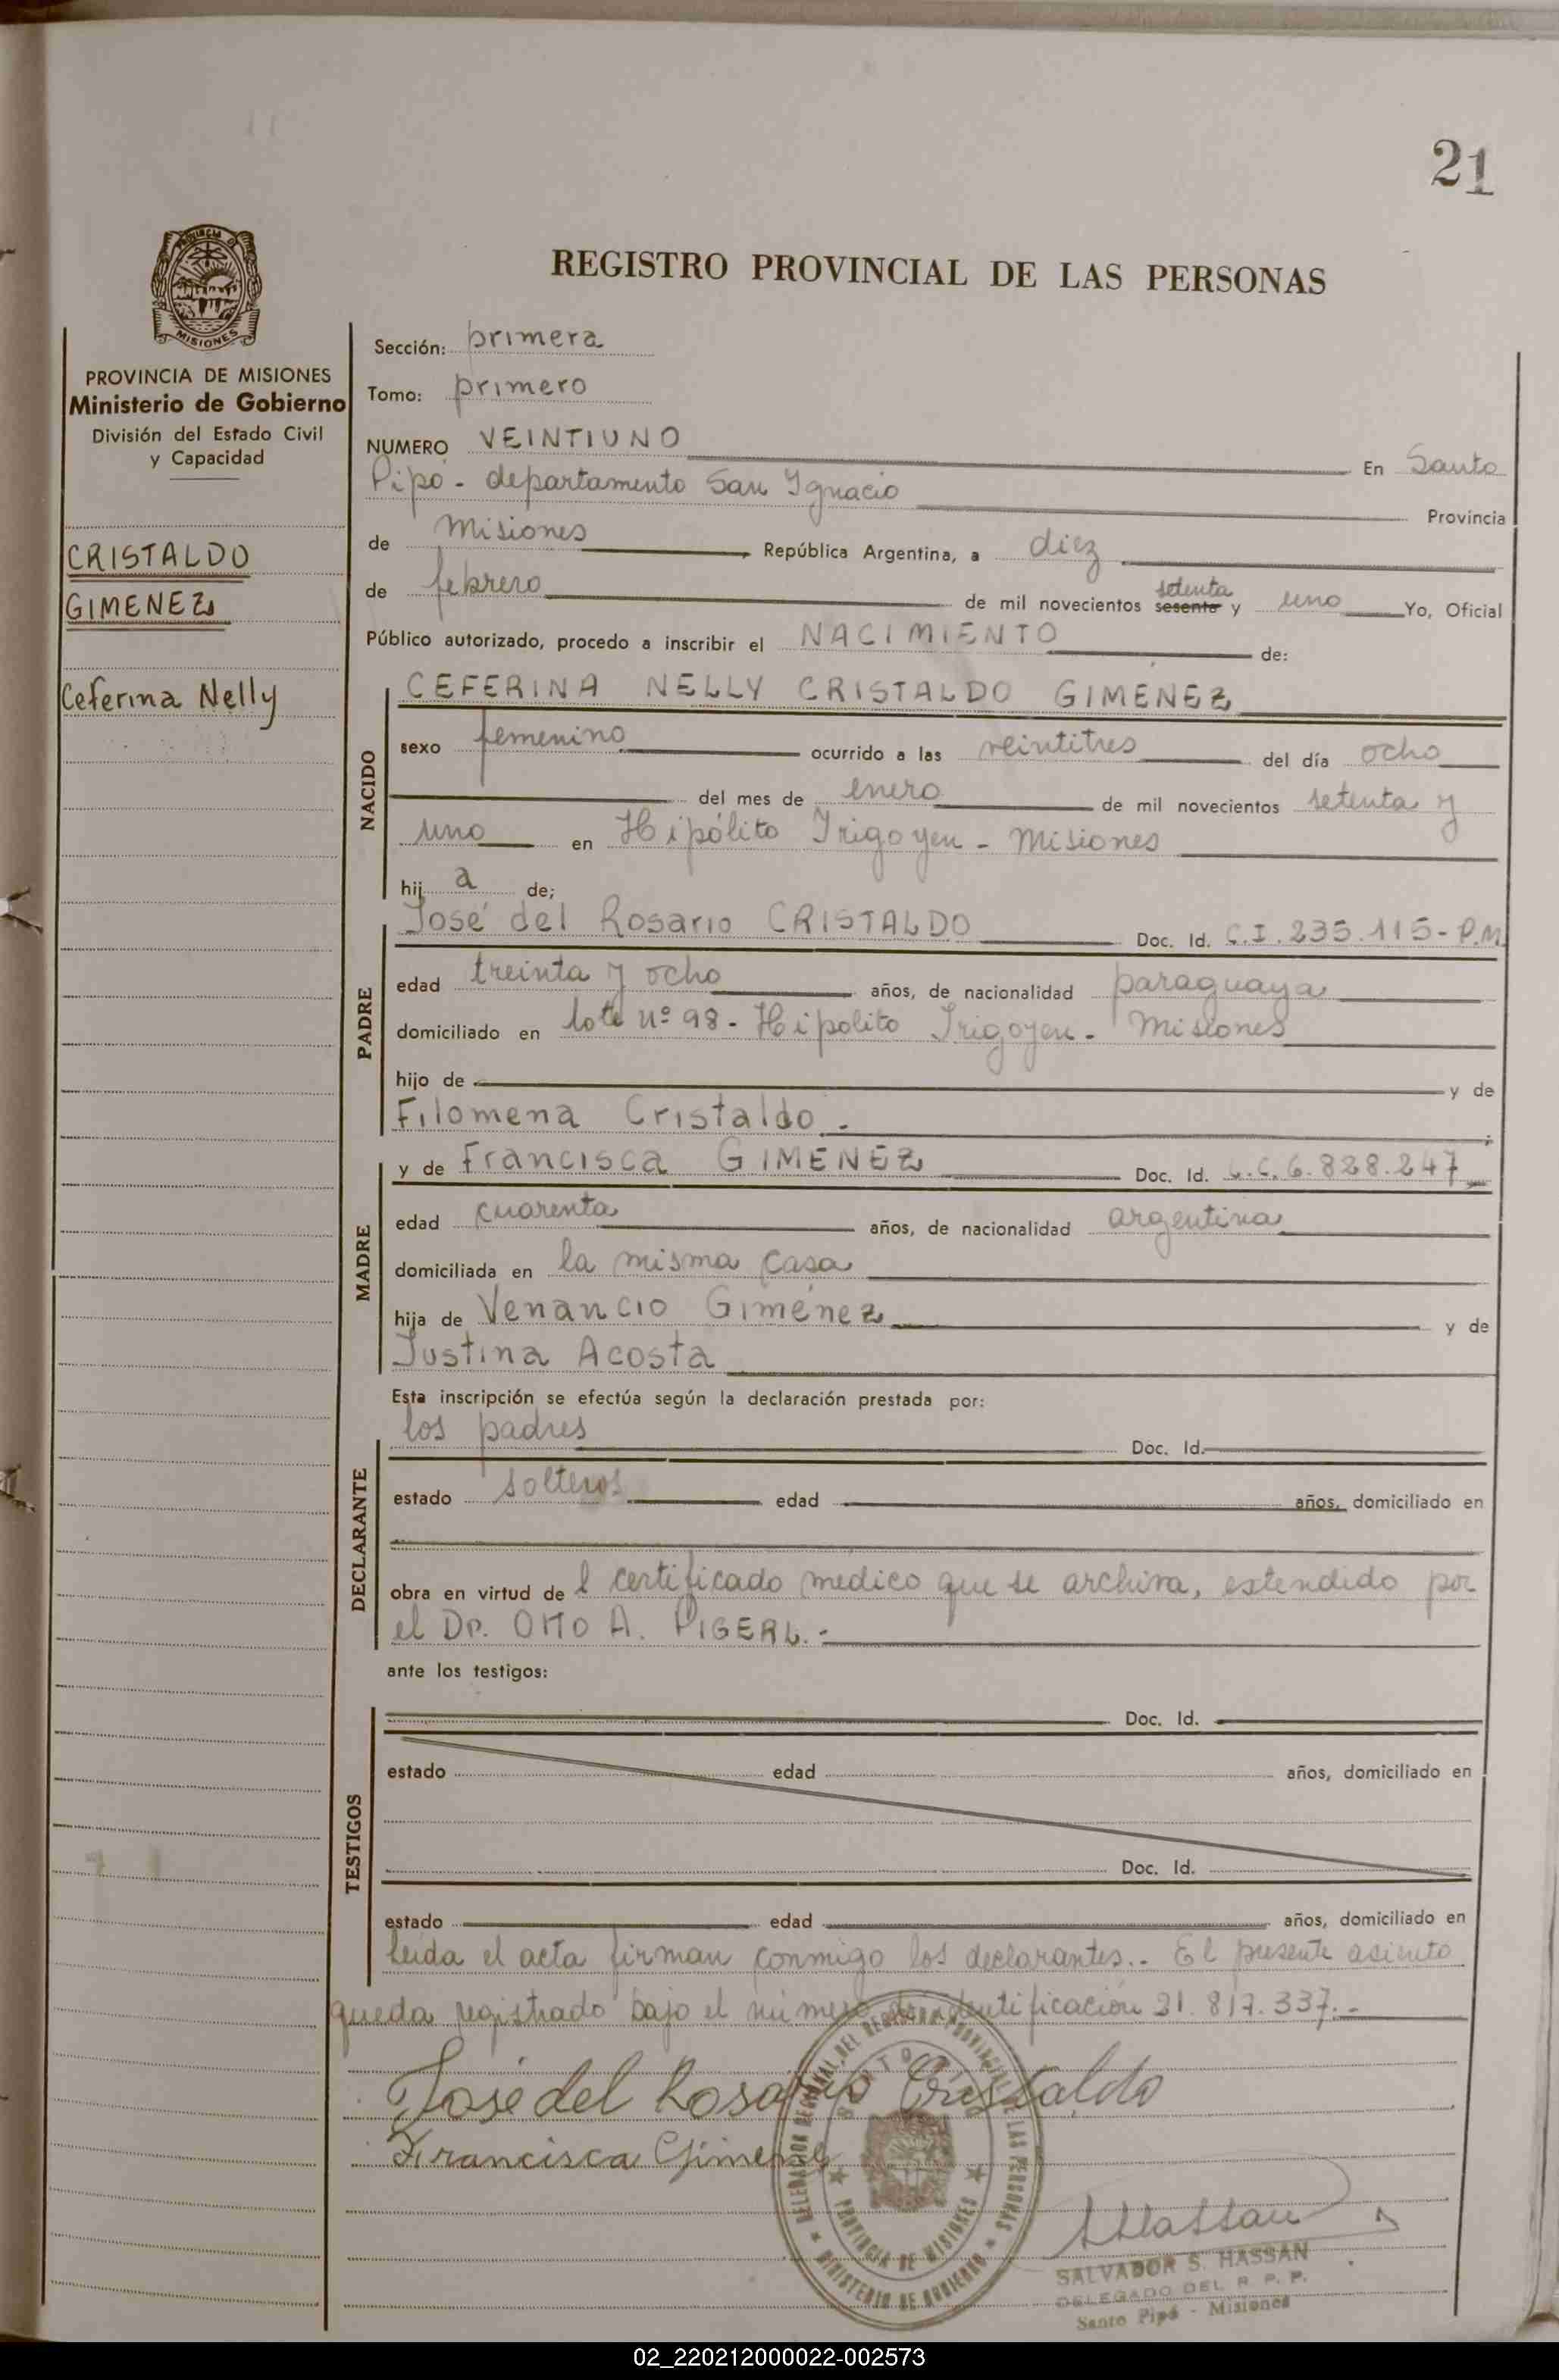 21
PROVINCIA DE
MISIONES
PROVINCIA DE MISIONES
Ministerio de Gobierno
División del Estado Civil
y Capacidad
CRISTALDO
GIMENEZ
Ceferina Nelly
REGISTRO PROVINCIAL DE LAS PERSONAS
Sección: primera
Tomo: primero
NUMERO VEINTIUNO En Santo
Pipó - departamento San Ignacio Provincia
de Misiones República Argentina, a diez
de febrero de mil novecientos sesenta setenta y uno Yo, Oficial
Público autorizado, procedo a inscribir el NACIMIENTO de:
NACIDO
CEFERINA NELLY CRISTALDO GIMENEZ
sexo femenino ocurrido a las veintitres del día ocho
del mes de enero de mil novecientos setenta y
uno en Hipólito Irigoyen - Misiones
hij a de;
PADRE
José del Rosario CRISTALDO Doc. Id. C.I. 235.115 - P.M.
edad treinta y ocho años, de nacionalidad paraguaya
domiciliado en lote nº 98 - Hipolito Irigoyen - Misiones
hijo de y de
Filomena Cristaldo.-
MADRE
y de Francisca GIMENEZ Doc. Id. L.C. 6.828.247
edad cuarenta años, de nacionalidad argentina
domiciliada en la misma casa
hija de Venancio Giménez y de
Justina Acosta
Esta inscripción se efectúa según la declaración prestada por:
DECLARANTE
los padres Doc. Id.
estado solteros edad años, domiciliado en
obra en virtud de l certificado medico que se archiva, extendido por
el Dr. OTTO A. PIGERL.-
ante los testigos:
TESTIGOS
Doc. Id.
estado edad años, domiciliado en
Doc. Id.
estado edad años, domiciliado en
leida el acta firman conmigo los declarantes.- El presente asiento
queda registrado bajo el número de identificación 21.817.337.-
José del Rosario Cristaldo
Francisca Gimenez
DELEGACION REGIONAL DEL REGISTRO PROVINCIAL DE LAS PERSONAS
PROVINCIA DE MISIONES
MINISTERIO DE GOBIERNO
SALVADOR S. HASSAN
DELEGADO DEL R. P. P.
Santo Pipó - Misiones
02_220212000022-002573